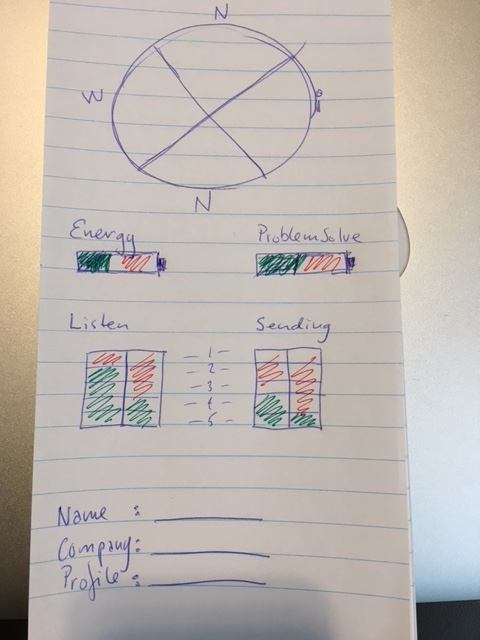 N
W
N
Energy ProblemSolve
Listen Sending
- 1 -
- 2 -
- 3 -
- 4 -
- 5 -
Name : 
Company:
Profile :